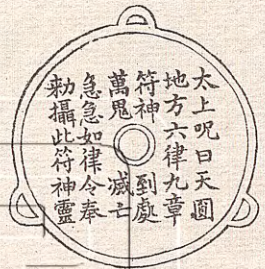 太上呪曰天圓
地方六律九章
符神 到處
萬鬼 滅亡
急急如律令奉
勑攝此符神靈